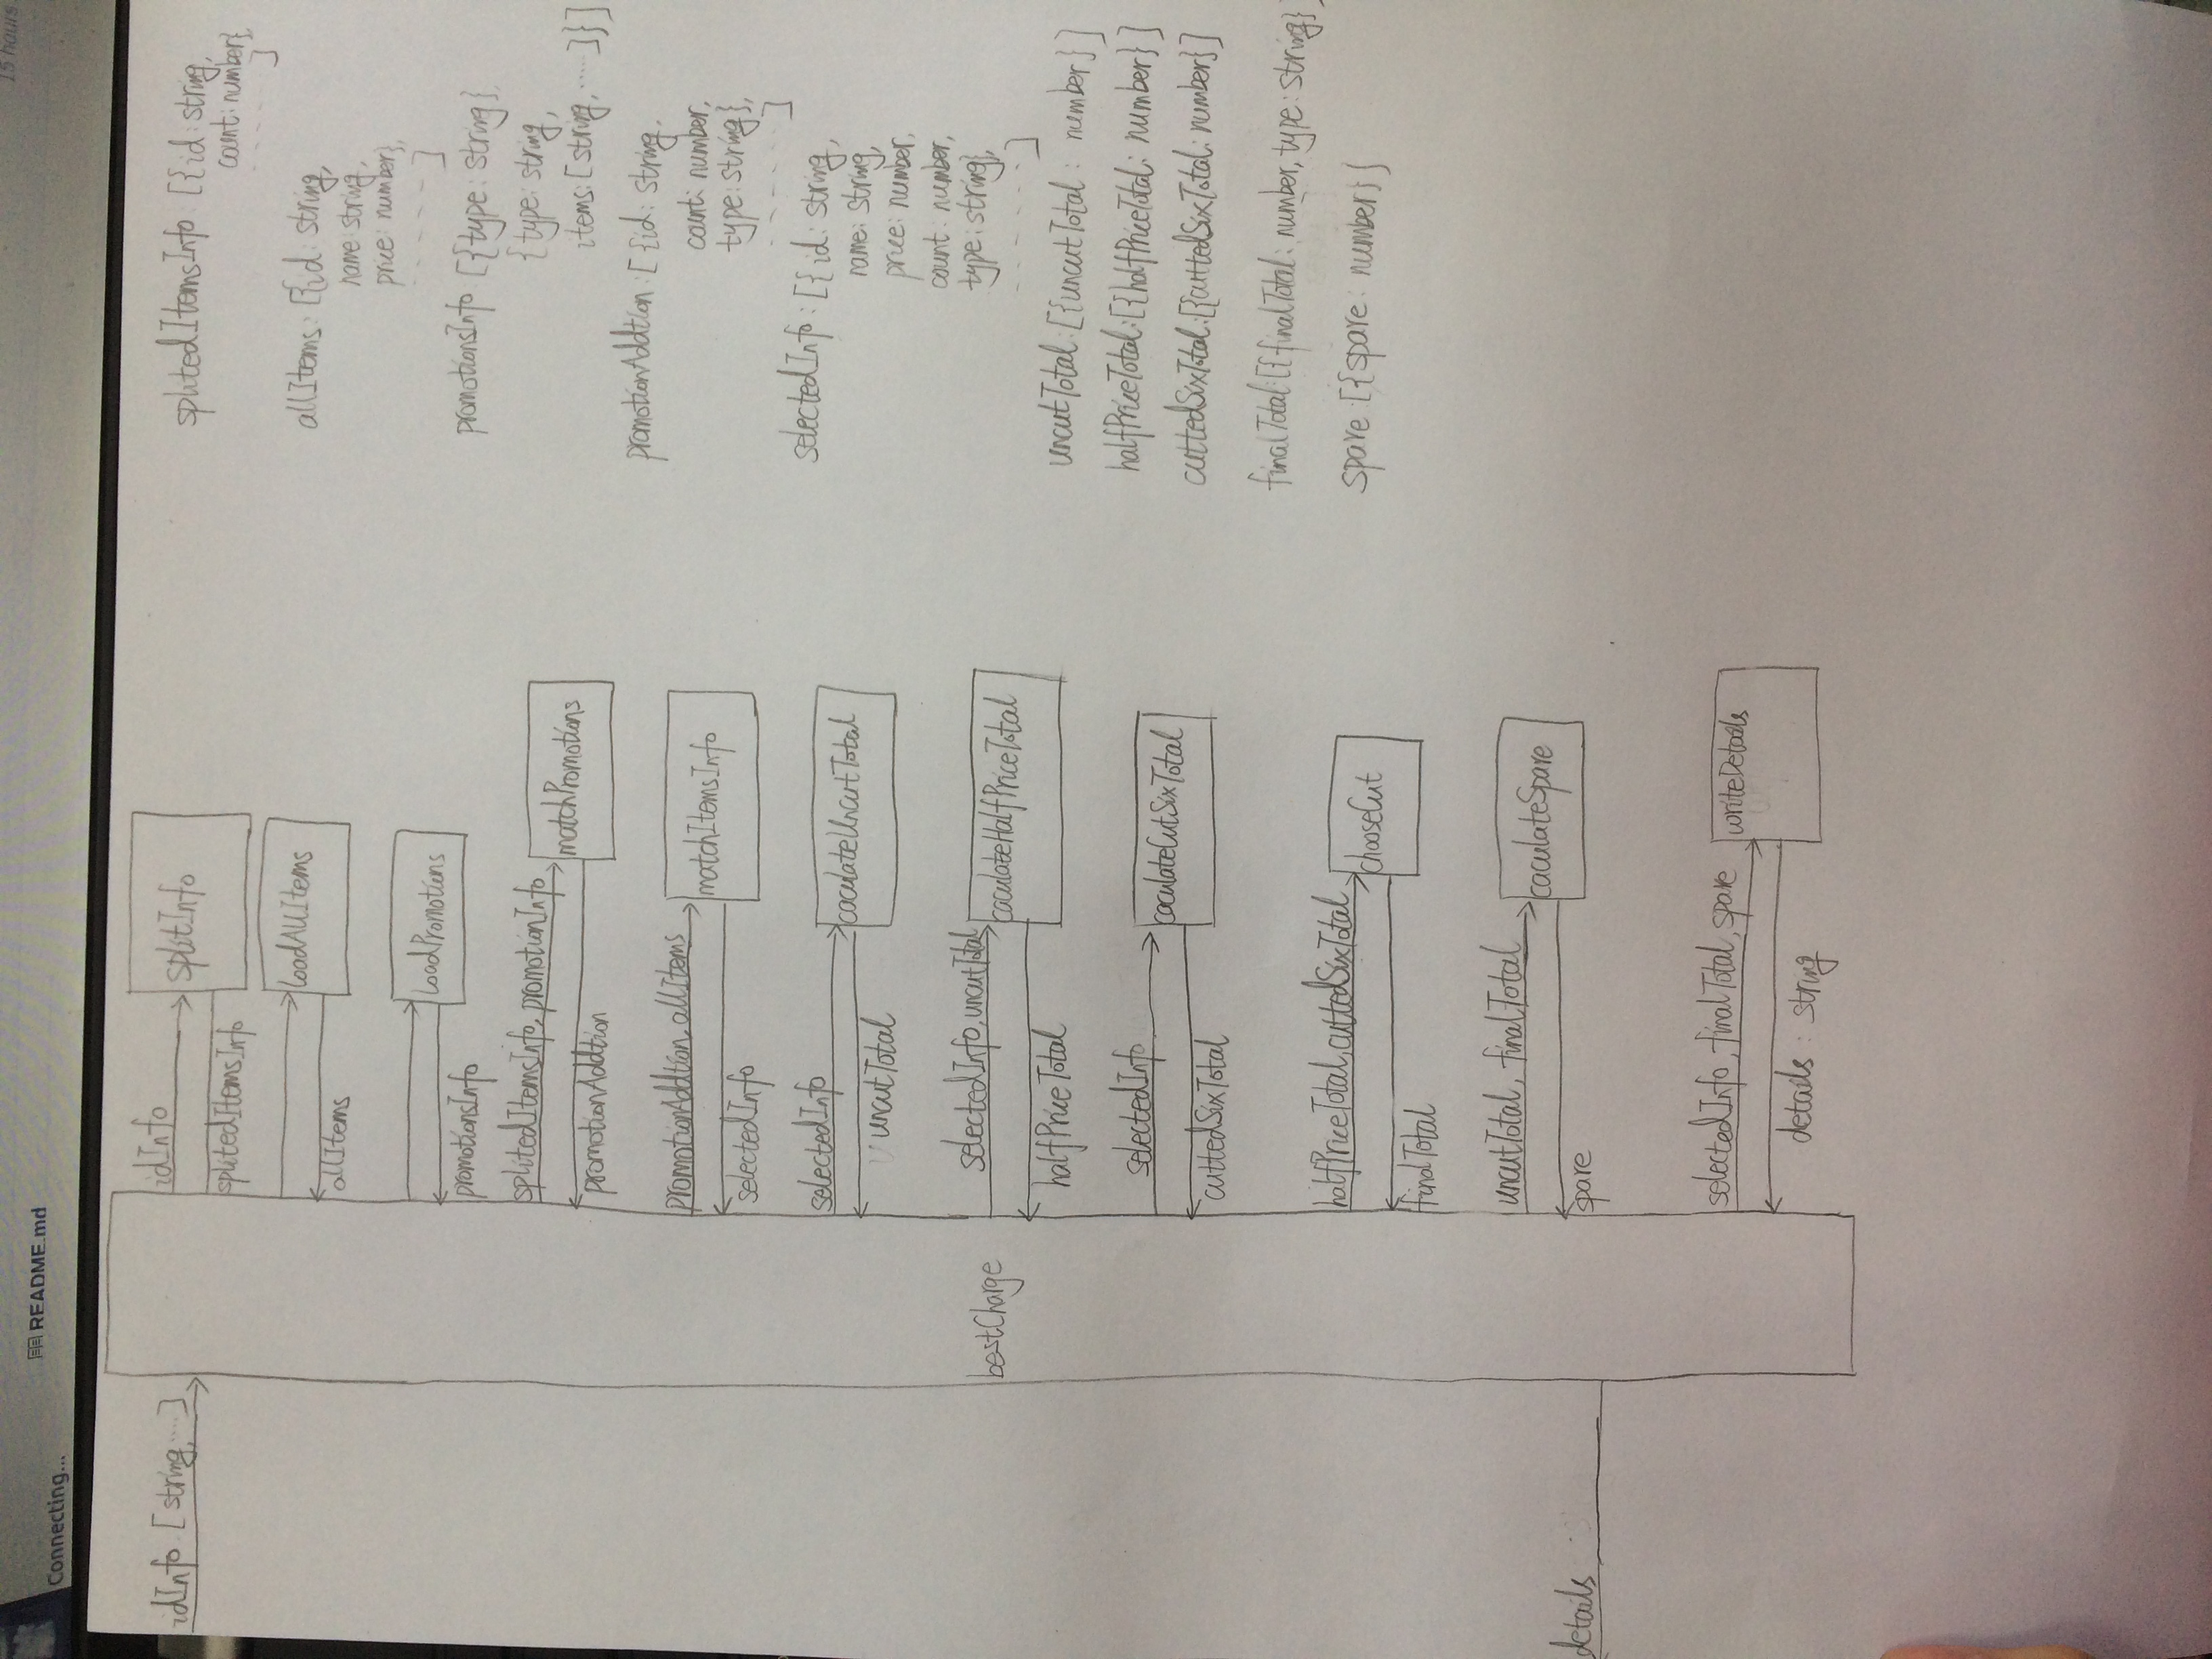 15 hours
README.md
Connecting...
idInfo [string, ....]
idInfo
splitInfo
splitedItemsInfo
loadAllItems
allItems
loadPromotions
promotionsInfo
splitedItemsInfo, promotionInfo
matchPromotions
promotionAddtion
promotionAddtion, allItems
matchItemsInfo
selectedInfo
selectedInfo
caculateUncutTotal
uncutTotal
bestCharge
selectedInfo, uncutTotal
caculateHalfPriceTotal
halfPriceTotal
selectedInfo
caculateCutSixTotal
cuttedSixTotal
halfPriceTotal, cuttedSixTotal
chooseCut
finalTotal
uncutTotal, finalTotal
caculateSpare
spare
details
selectedInfo, finalTotal, spare
writeDetails
details : string
splitedItemsInfo [{id: string,
count: number},
------]
allItems: [{id: string,
name: string,
price: number},
------]
promotionsInfo [{type: string}
{type: string,
items: [string, .....]}]
promotionAddtion: [{id: string,
count: number,
type: string},
------]
selectedInfo: [{id: string,
name: string,
price: number,
count: number,
type: string},
-------]
uncutTotal: [{uncutTotal: number}]
halfPriceTotal: [{halfPriceTotal: number}]
cuttedSixTotal: [{cuttedSixTotal: number}]
finalTotal: [{finalTotal: number, type: string}]
spare [{spare: number}]